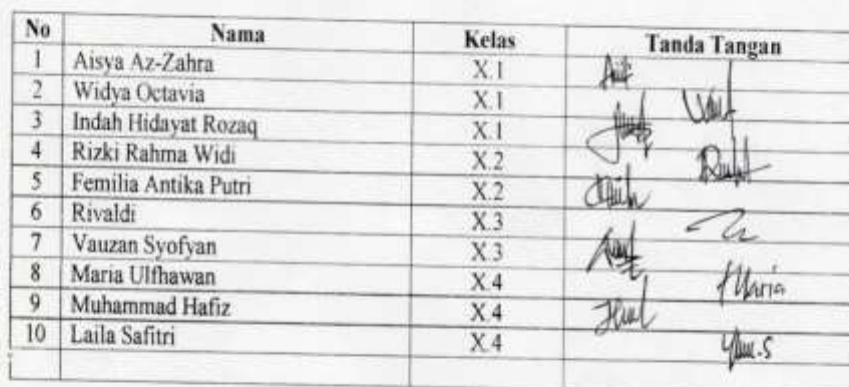 No Nama Kelas Tanda Tangan
1 Aisya Az-Zahra X.1
2 Widya Octavia X.1
3 Indah Hidayat Rozaq X.1
4 Rizki Rahma Widi X.2
5 Femilia Antika Putri X.2
6 Rivaldi X.3
7 Vauzan Syofyan X.3
8 Maria Ulfhawan X.4 Maria
9 Muhammad Hafiz X.4
10 Laila Safitri X.4